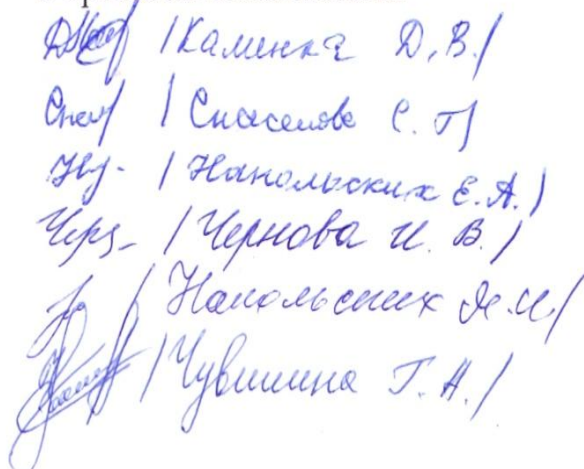 /Каменка Д.В./
/Спаселова С.П/
/Напольских Е.А./
/Чернова И.В./
/Напольских Я.И/
/Чувилина Г.А./